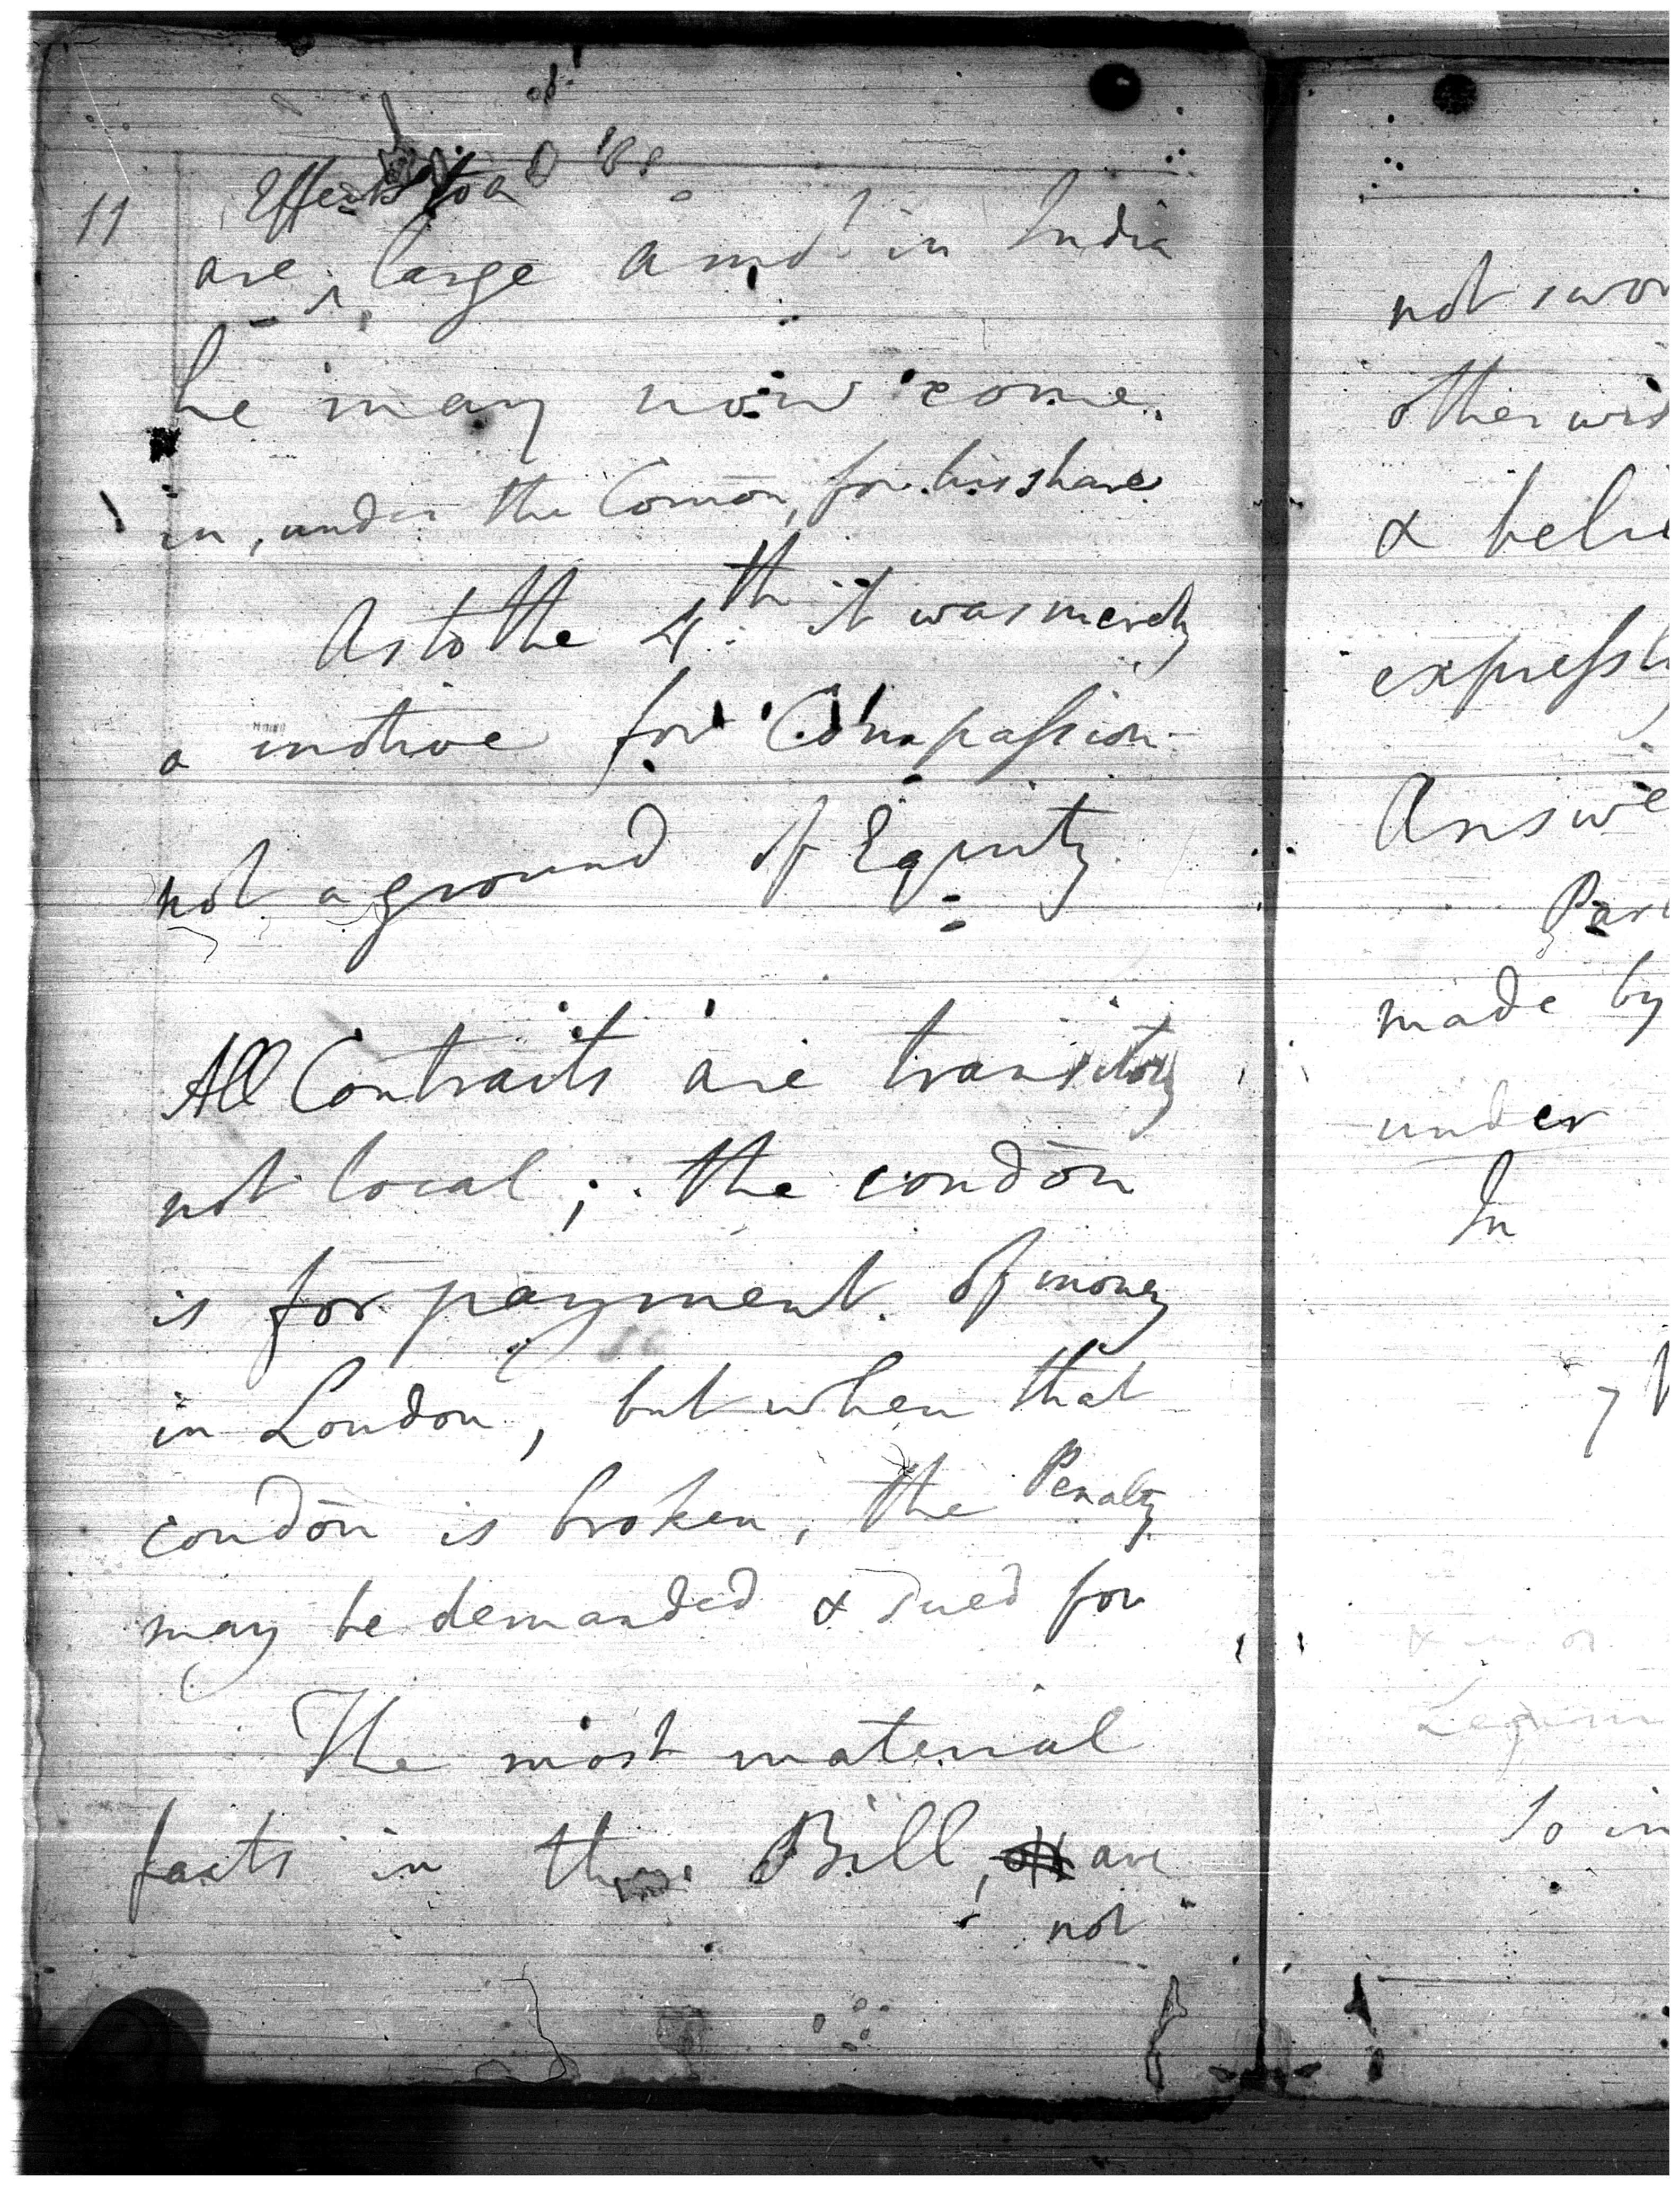 11
Effects to a
are large amt in India
he may now come
in, under the Comōn, for his share
As to the 4th it was merely
a motive for Compassion
not a ground of Equity
All Contracts are transitory
not local; the condōn
is for payment of money
in London, but when that
condōn is broken, the Penalty
may be demanded & sued for
The most material
facts in Bill, are
not
not swor
otherwis
& belie
expressly
Answe
Par
made by
under
In
7
So in